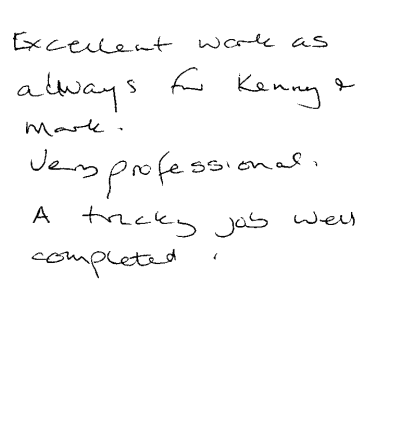 Excellent work as
always fr Kenny &
Mark.
Very professional.
A tricky job well
completed.